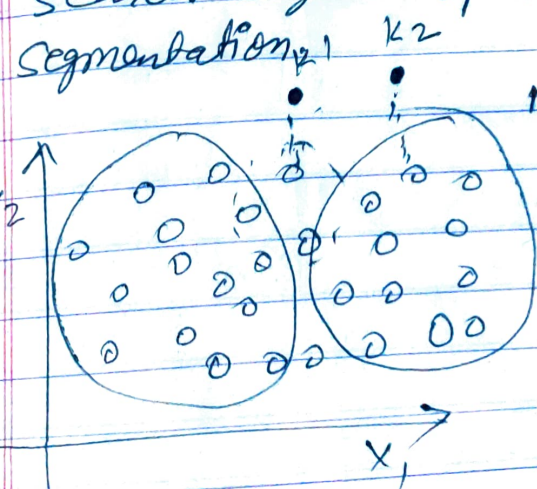 segmentation
k1
k2
2
X1